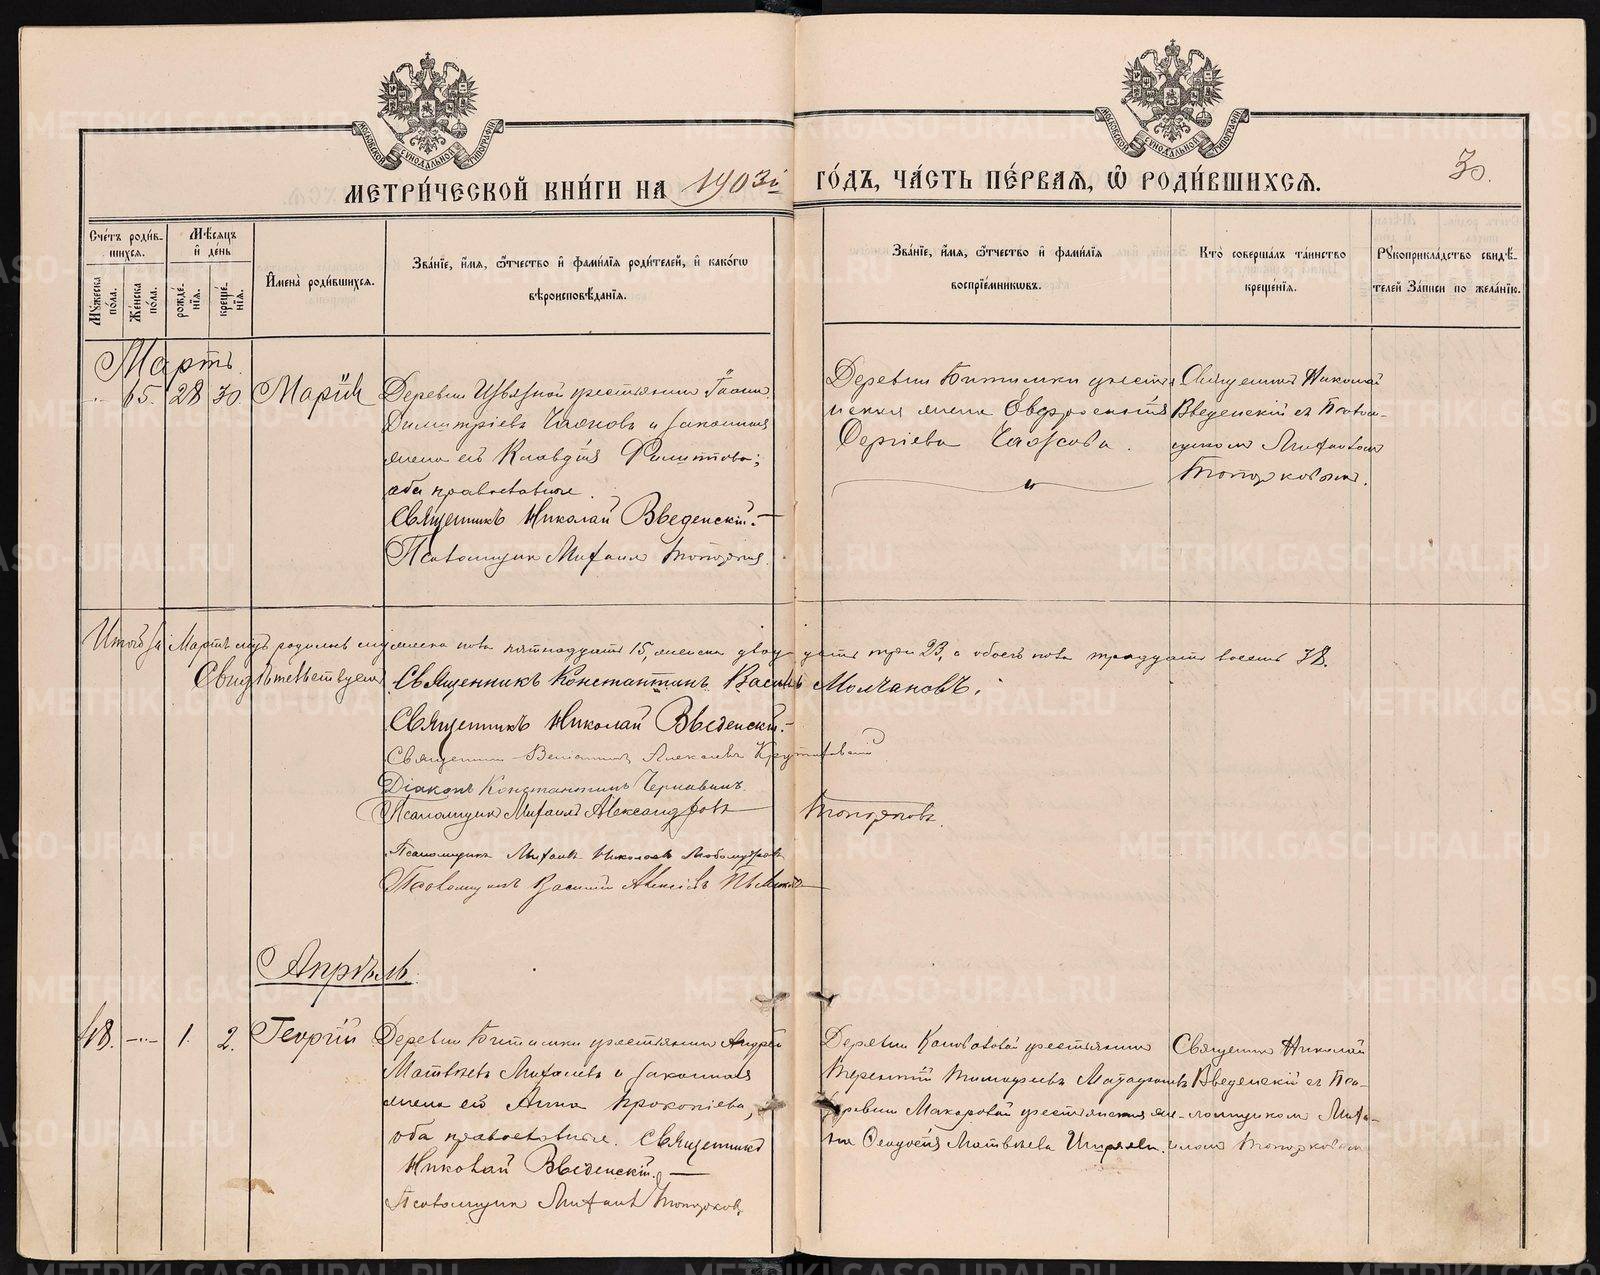 МЕТРИ́ЧЕСКОЙ КНИ́ГИ НА 1903й ГО́ДЪ, ЧА́СТЬ ПЕ́РВАЯ, Ѡ РОДИ́ВШИХСЯ.
30.
МОСКОВСКОЙ СѴНОДАЛЬНОЙ ТИПОГРАФІИ
МОСКОВСКОЙ СѴНОДАЛЬНОЙ ТИПОГРАФІИ
Сче́тъ роди́вшихся.
Му́жеска по́ла.
Же́нска по́ла.
Мѣ́сяцъ и҆ де́нь
рожде́нїя.
креще́нїя.
И҆мена̀ роди́вшихся.
Зва́нїе, и҆́мя, ѻ҆́тчество и҆ фами́лїя роди́телей, и҆ како́гѡ
вѣроисповѣ́данїя.
Зва́нїе, и҆́мя, ѻ҆́тчество и҆ фами́лїя
воспрїе́мниковъ.
Кто̀ соверша́лъ та́инство
креще́нїя.
Рукоприкла́дство свидѣ́телей за́писи по жела́нїю.
Мартъ.
65. 28 30. Марія
Деревни крестьянин Іоанн
Димитріевъ Часнов и законная
жена его Клавдія Филиппова;
оба православные.
Священникъ Николай Введенскій.
Псаломщик Михаил Топорков.
Деревни Битимки крестьянская жена Евфросинія
Сергіева
Священник Николай
Введенскій с Псаломщиком Михаилом
Топорковым.
Итого за Мартъ мцъ родилось мужеска пола пятнадцать 15, женска двадцать три 23, а обоего пола тридцать восемь 38.
Свидѣтельствуем Священникъ Константинъ Васил. Молчановъ.
Священникъ Николай Введенскій.
Священник Веніамин Алексеев
Діаконъ Константинъ Чернавинъ.
Псаломщик Михаилъ Александров Топорков.
Псаломщик Михаил Николаев Любомудров
Псаломщик Василий Алексеевъ
Апрѣль.
48. 1. 2. Георгій
Деревни Битимки крестьянин Андрей
Матвѣевъ Михалевъ и законная
жена его Анна Прокопіева,
оба православные. Священникъ
Николай Введенскій.
Псаломщик Михаил Топорков.
Деревни Коноваловой крестьянин
Терентій Тимофеев
деревни Макаровой крестьянская жена Феодосія Матвѣева
Священник Николай
Введенскій с Псаломщиком Михаилом Топорковым
METRIKI.GASO-URAL.RU